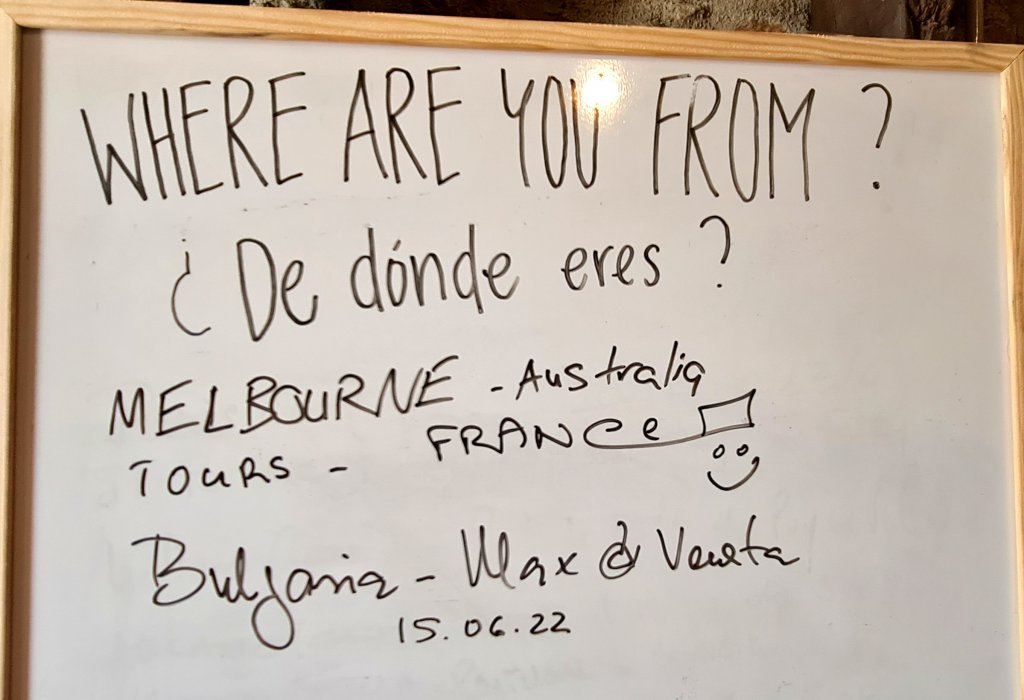 WHERE ARE YOU FROM ?
¿ De dónde eres ?
MELBOURNE - Australia
TOURS - FRANCe
Bulgaria - Max & Veneta
15.06.22